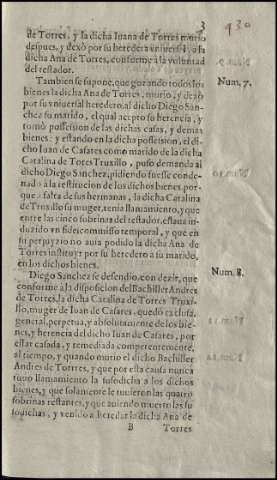 3
930
de Torres, y la dicha Iuana de Torres murio
despues, y dexò por su heredera vniversal, a la
dicha Ana de Torres, conforme a la voluntad
del testador.
Tambien se supone, que gozando todos los
bienes la dicha Ana de Torres, murio, y dexò
por su vniversal heredero, al dicho Diego San-
chez su marido, el qual aceto su herencia, y
tomò possession de las dichas casas, y demas
bienes: y estando en la dicha possession, el di-
cho Iuan de Casares como marido de la dicha
Catalina de Torres Truxillo, puso demanda al
dicho Diego Sanchez, pidiendo fuesse conde-
nado a la restitucion de los dichos bienes, por-
que a falta de sus hermanas, la dicha Catalina
de Truxillo su muger, tenia llamamiento, y que
entre las cinco sobrinas del testador, estaua in-
duzido vn fideicommisso temporal, y que en
su perjuyzio no auia podido la dicha Ana de
Torres instituyr por su heredero a su marido,
en los dichos bienes.
Diego Sanchez se defendio, con dezir, que
conforme a la disposicion del Bachiller Andres
de Torres, la dicha Catalina de Torres Truxi-
llo, muger de Iuan de Casares, quedò excluSa,
general, perpetua, y absolutamente de los bie-
nes, y herencia del dicho Iuan de Casares, por
estar casada, y remediada competentemente,
al tiempo, y quando murio el dicho Bachiller
Andres de Torrres, y que por esta causa nunca
tuuo llamamiento la susodicha a los dichos
bienes, y que solamente le tuuieron las quatro
sobrinas restantes, y que auiendo muerto las su
sodichas, y venido a heredar la dicha Ana de
B Torres
Num. 7.
Num. 8.